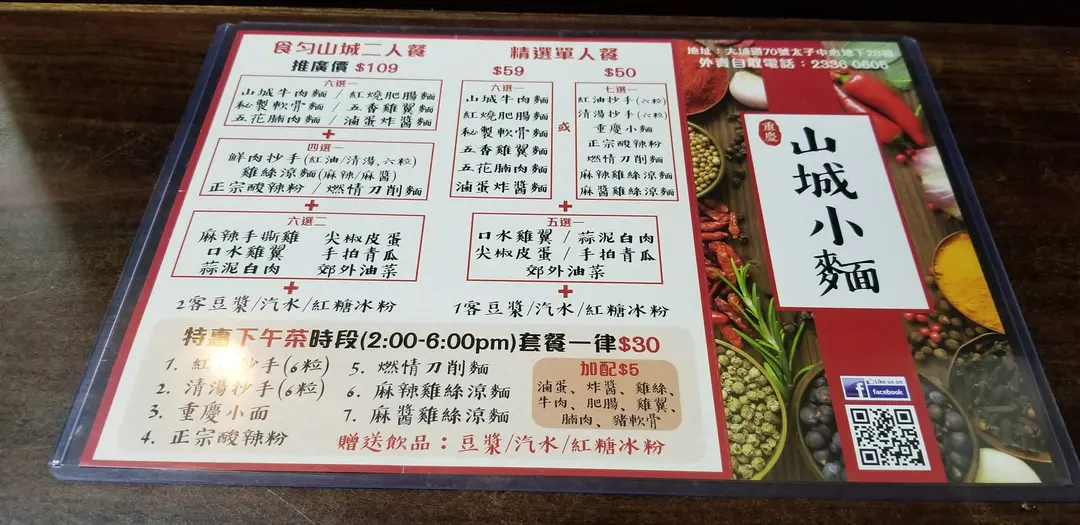 食勻山城二人餐
推廣價 $109
六選一
山城牛肉麵 / 紅燒肥腸麵
秘製軟骨麵 / 五香雞翼麵
五花腩肉麵 / 滷蛋炸醬麵
+
四選一
鮮肉抄手(紅油/清湯,六粒)
雞絲涼麵(麻辣/麻醬)
正宗酸辣粉 / 燃情刀削麵
+
六選二
麻辣手撕雞 尖椒皮蛋
口水雞翼 手拍青瓜
蒜泥白肉 郊外油菜
+
2客豆漿/汽水/紅糖冰粉
精選單人餐
$59
六選一
山城牛肉麵
紅燒肥腸麵
秘製軟骨麵
五香雞翼麵
五花腩肉麵
滷蛋炸醬麵
或
$50
七選一
紅油抄手(六粒)
清湯抄手(六粒)
重慶小麵
正宗酸辣粉
燃情刀削麵
麻辣雞絲涼麵
麻醬雞絲涼麵
+
五選一
口水雞翼 / 蒜泥白肉
尖椒皮蛋 / 手拍青瓜
郊外油菜
+
1客豆漿/汽水/紅糖冰粉
特惠下午茶時段(2:00-6:00pm)套餐一律$30
1. 紅油抄手(6粒)
2. 清湯抄手(6粒)
3. 重慶小面
4. 正宗酸辣粉
5. 燃情刀削麵
6. 麻辣雞絲涼麵
7. 麻醬雞絲涼麵
加配$5
滷蛋、炸醬、雞絲、
牛肉、肥腸、雞翼、
腩肉、豬軟骨
贈送飲品：豆漿/汽水/紅糖冰粉
地址：大埔道70號太子中心地下25號
外賣自取電話：2336 0605
重慶
山城小麵
Like us on
facebook